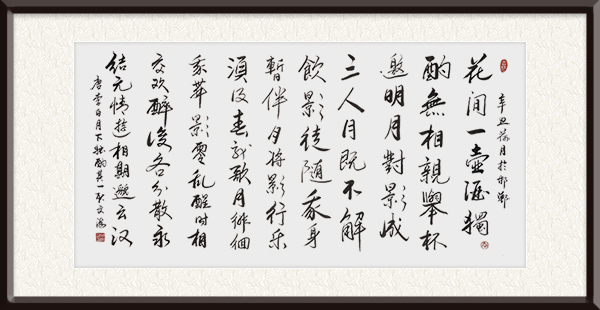 辛丑荷月於邯鄲
花间一壺酒獨
酌無相親舉杯
邀明月對影成
三人月既不解
飲影徒隨我身
暫伴月將影行樂
須及春我歌月徘徊
我舞影零亂醒時相
交欢醉後各分散永
結无情遊相期邈云汉
唐李白月下獨酌其一